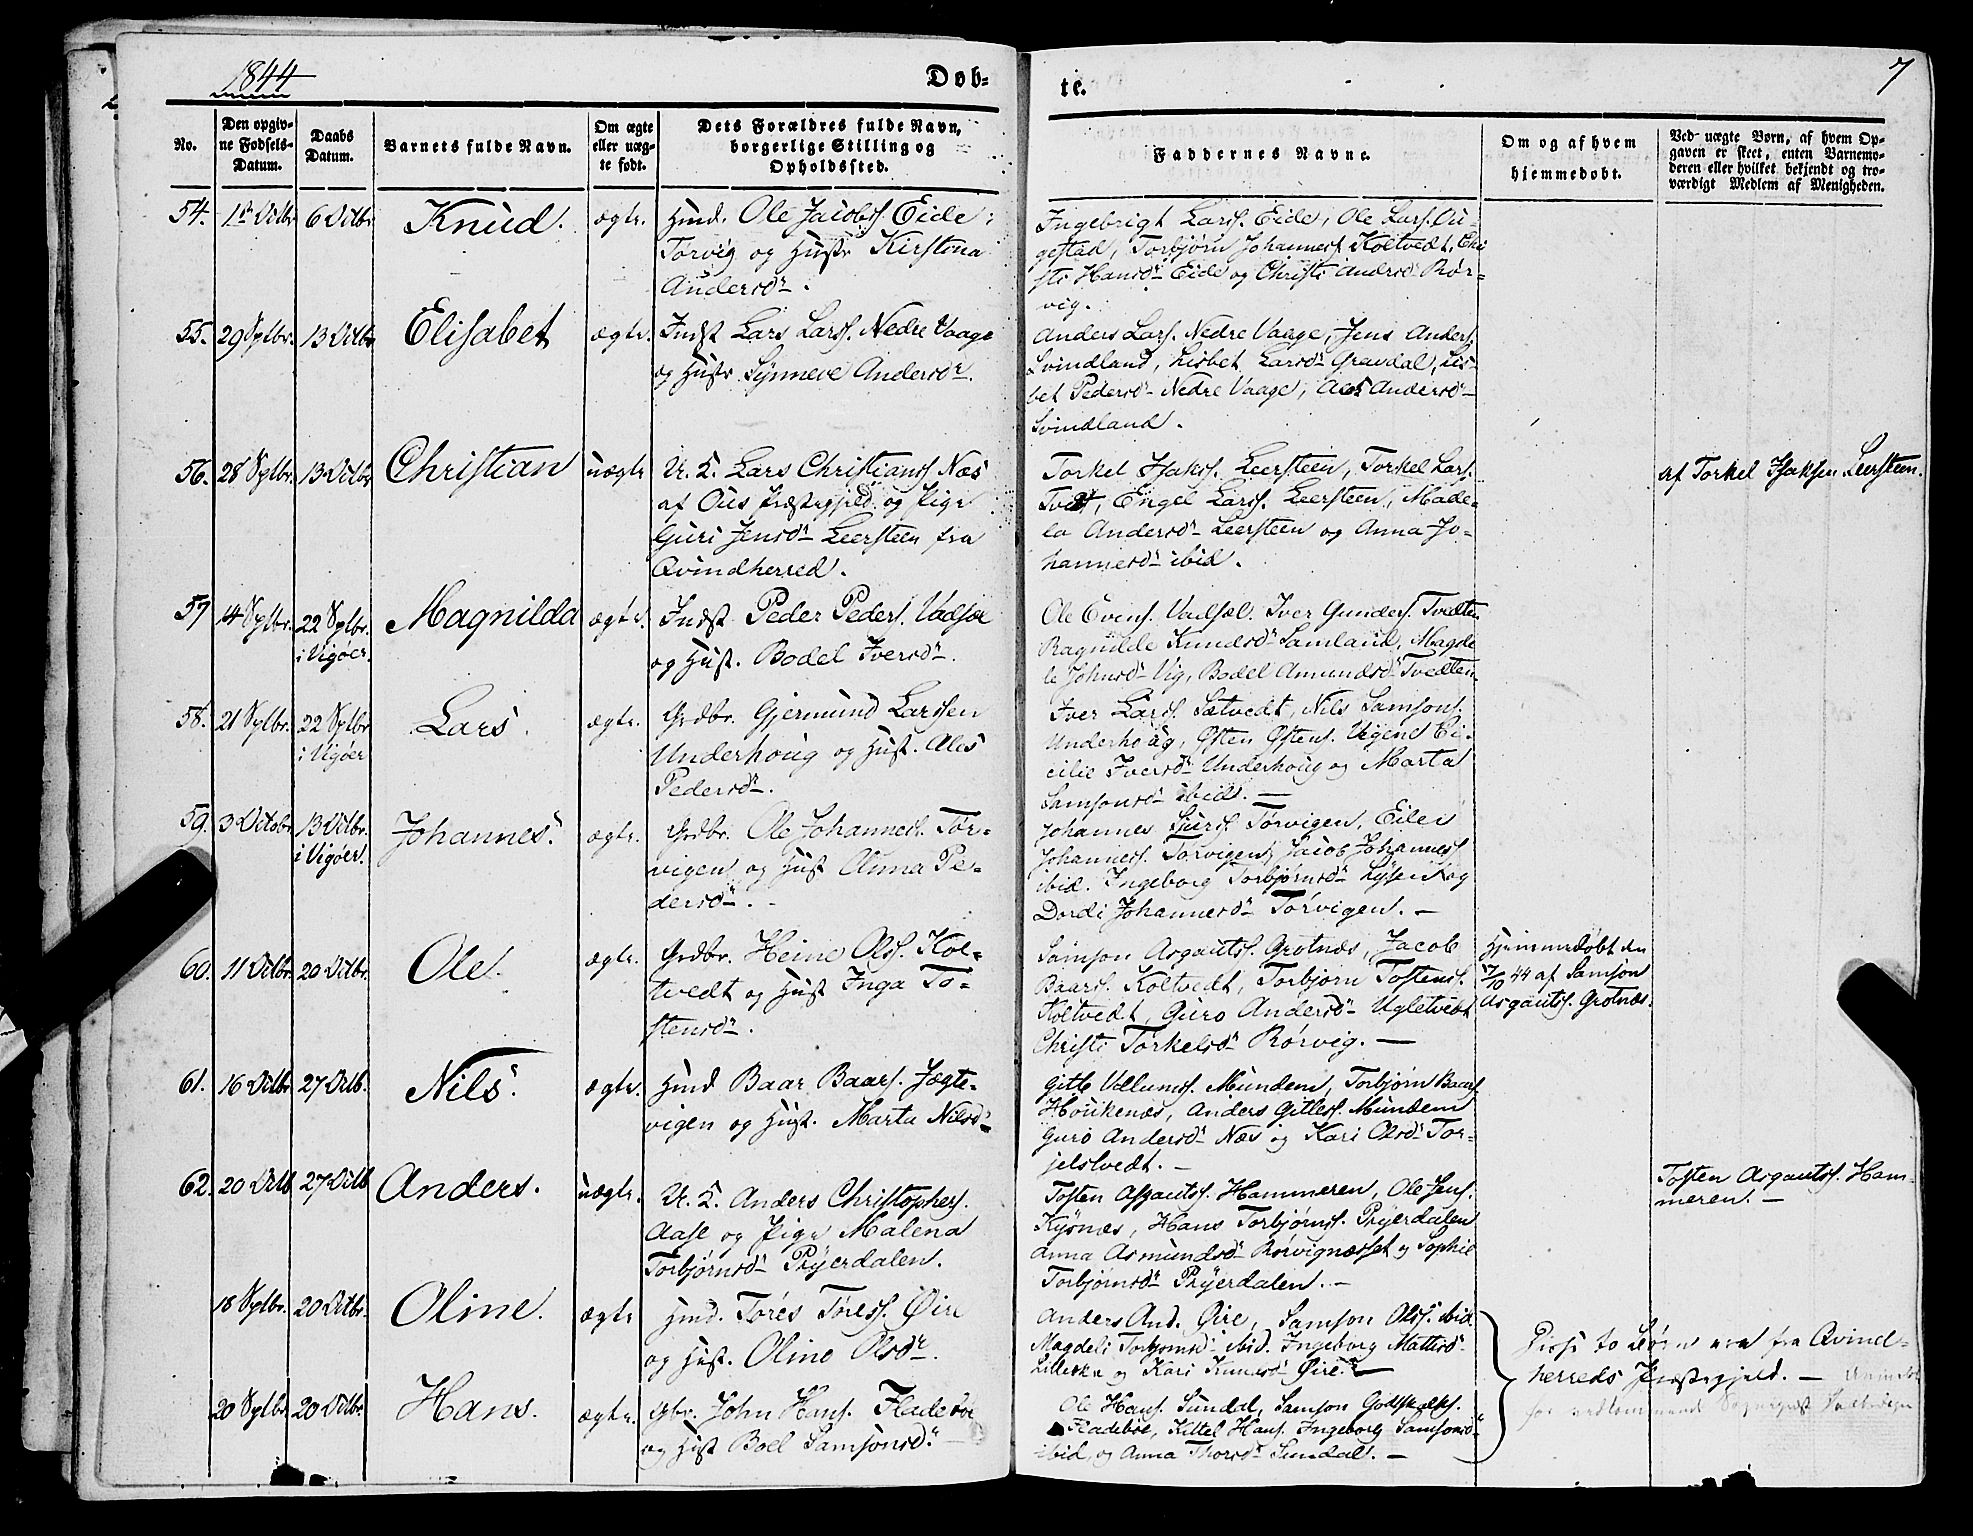 1844
Døb-
te.
7
No.
Den opgiv-
ne Fødsels-
Datum.
Daabs
Datum.
Barnets fulde Navn.
Om ægte
eller uæg-
te født.
Dets Forældres fulde Navn,
borgerlige Stilling og
Opholdssted.
Faddernes Navne.
Om og af hvem
hjemmedøbt.
Ved uægte Børn, af hvem Op-
gaven er skeet, enten Barnemo-
deren eller hvilket bekjendt og tro-
værdigt Medlem af Menigheden.
54. 1ste Octbr 6 Octbr Knud. ægte. Hmd. Ole Jacobs. Eide
Torvig og Hustr Kirstina
Andersdr.
Ingebrigt Larss. Eide, Ole Lars. Au-
gestad, Torbjørn Johanness. Koltvedt, Chri
sti Hansdr Eide og Christi Andrsdr Rør-
vig.
55. 29 Sptbr. 13 Octbr Elisabet ægte. Indst Lars Larss. Nedre Vaage
og Hustr. Synneve Andersdr.
Anders Lars. Nedre Vaage, Jens Anders.
Svindland, Lisbet Larsdr Gravdal, Lis-
bet Pedersdr Nedre Vaage, Ales Andersdr
Svindland.
56. 28 Sptbr. 13 Octbr Christian uægte U. K. Lars Christianss. Næs
af Ous Præstegjeld og Pige
Guri Jensdr Leersteen fra
Qvindherred.
Torkel Isaks. Leersteen, Torkel Lars.
Tvedt, Engel Larss. Leersteen, Made-
la Andersdr Leersteen og Anna Jo-
hannesdr ibid.
af Torkel Isaksen Leersteen.
57 14 Sptbr. 22 Sptbr.
i Vigøer. Magnilda ægte. Indst Peder Peders. Vadsæl
og Hust. Bodel Iversdr.
Ole Evens. Vadsæl. Iver Gunders. Tvedten
Ragnilde Knudsdr Samland, Magde
le Johnsdr Vig, Bodel Amundsdr Tvedten
58. 21 Sptbr. 22 Sptbr
i Vigøer Lars. ægte. Grdbr. Gjermund Larssen
Underhoug og Hust. Ales
Pedersdr.
Iver Larss. Sætvedt, Nils Samsons.
Underhoug, Østen Østens. Vigene Ci-
cilie Iversdr Underhoug og Marta
Samsonsdr ibid. —
59. 3 Octobr 13 Octbr.
i Vigøer. Johannes. ægte. Grdbr. Ole Johanness. Tor-
vigen og Hust Anna Pe-
dersdr.
Johannes Sjurs. Torvigen, Eilev
Johanness. Torvigen, Jacob Johanness
ibid. Ingeborg Torbjørnsdr Lysevk og
Dordi Johannesdr Torvigen. —
60. 11 Octbr. 20 Octbr. Ole. ægte. Grdbr. Heine Ols. Kol-
tvedt og Hust Inga To-
stensdr.
Samson Asgauts. Grotnæs, Jacob
Baars. Koltvedt, Torbjørn Tostens.
Koltvedt, Guro Andersdr Ugletvedt
Christi Torkelsdr Rørvig. —
Hjemmedøbt den
17/10 44 af Samson
Asgauts. Grotnæs.
61. 16 Octbr 27 Octb. Nils. ægte. Hmd Baar Baars. Jægte-
vigen og Hust. Marta Nilsdr
Gitle Vollums. Mundem, Torbjørn Baars
Houkenæs, Anders Gitles. Mundem
Guro Andersdr Næs og Kari Olsdr Tor-
jelstvedt. —
62. 20 Octb 27 Octb Anders. uægte. U. K. Anders Christophers.
Aase og Pige Malena
Torbjørnsdr Pryerdalen.
Tosten Asgauts. Hammeren, Ole Jens.
Kysnæs, Hans Torbjørns. Pryerdalen
Anna Asmundsdr Rørvignæsset og Sophie
Torbjørnsdr Pryerdalen. —
Tosten Asgauts. Ham-
meren. —
18 Sptbr. 20 Octbr. Oline. ægte Hmd. Tores Toress. Øire
og Hust. Oline Olsdr.
Anders And. Øire, Samson Olss. ibid.
Magdeli Torbjørnsdr ibid. Ingeborg Mattisdr
og Kari Knudsdr Øire. —
20 Sptbr. 20 Octbr. Hans. ægte. Gbr. John Hans. Fladebøe
og Hust Boel Samsonsdr. —
Ole Hans. Sundal, Samson Godskalks.
Fladebøe, Kittel Hans. Ingeborg Samsonsdr
ibid, og Anna Thorsdr Sundal. —
Disse to Børn ere fra Qvind-
herreds Præstegjeld. —